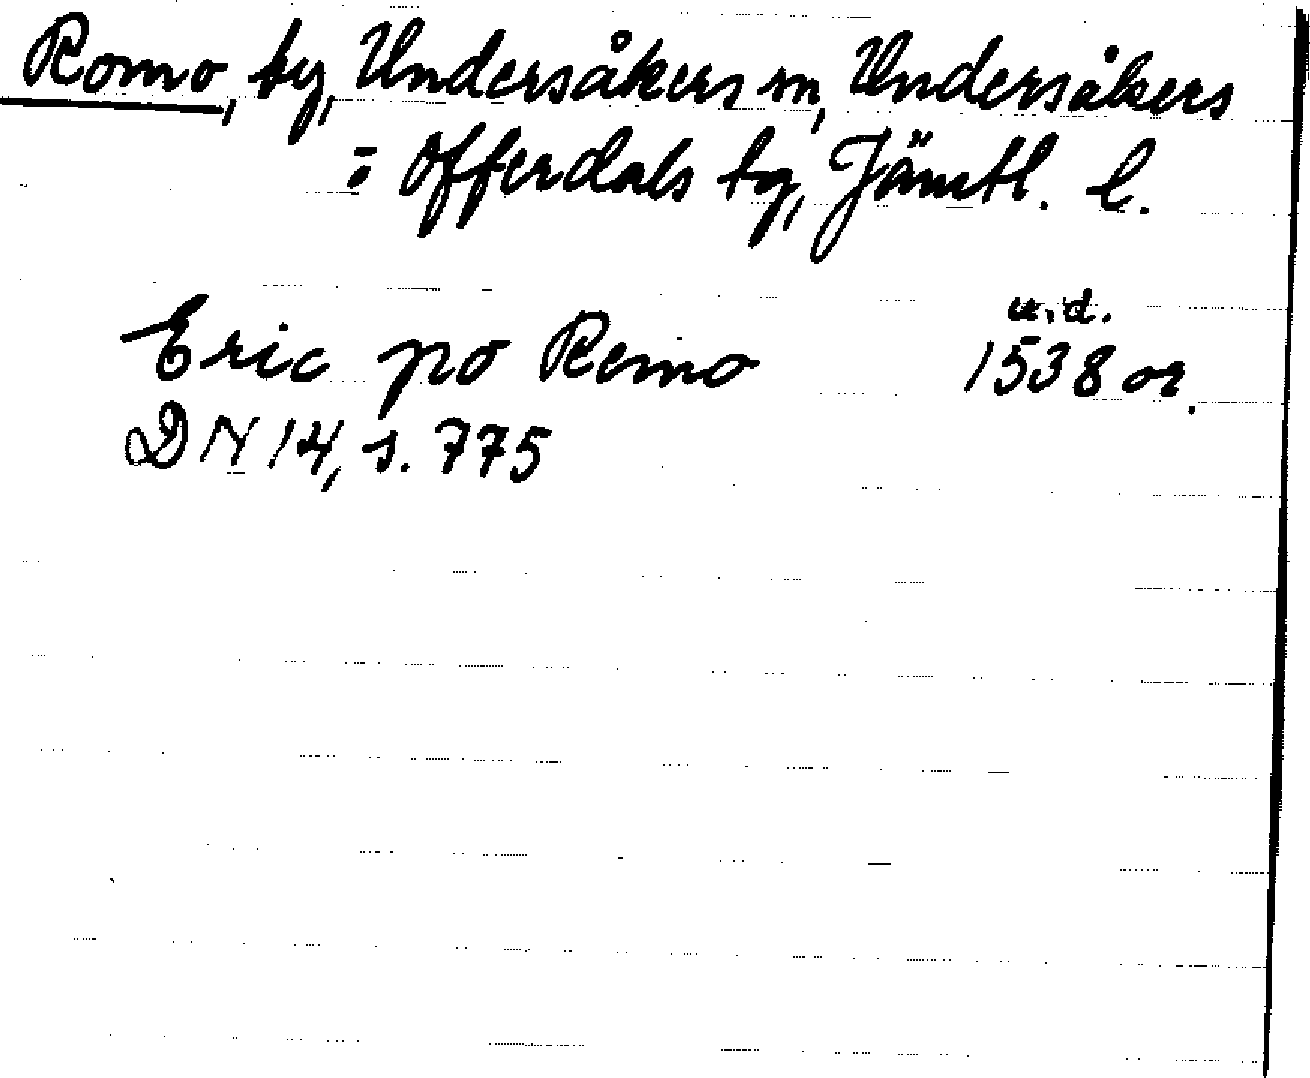 Romo, by, Undersåkers sn, Undersåkers
: Offerdals tg, Jämtl. l.
u.d.
Eric po Remo 1538 or.
DN 14, s. 775